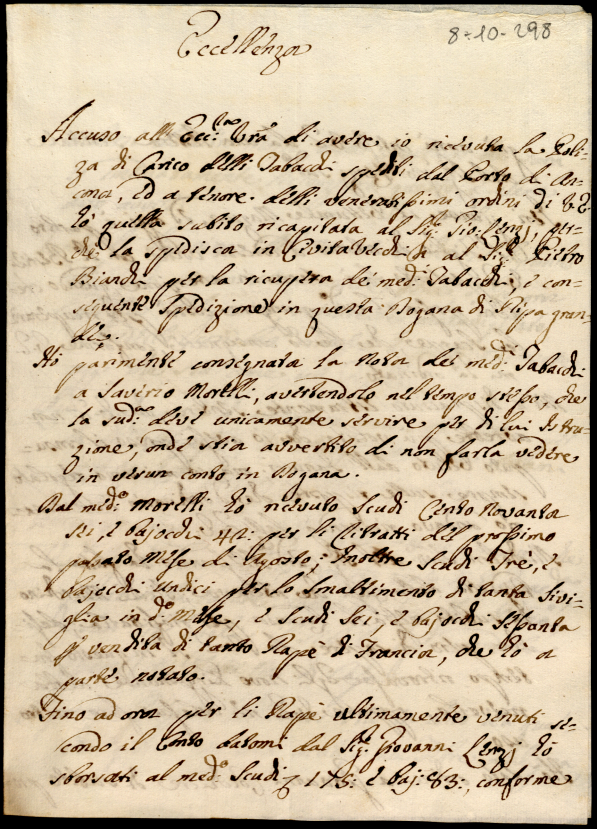 8-10-298
Eccellenza
Accuso all' Ecc:za Vrã di avere io ricevuta la Poli-
za di Carico delli Tabacchi spediti dal Porto di An-
cona, ed a tenore delli veneratissimi ordini di V E
hò quella subito ricapitata al Sig:r Gio: Lenzj, per-
chè la spedisca in Civita Vecchia al Sig:r Pietro
Bianchi per la ricupera dei med:i Tabacchi, e con-
seguente spedizione in questa Dogana di Ripa gran-
de.
Hò parimente consegnata la Nota dei med:i Tabacchi
a Saverio Morelli, avertendolo nel tempo stesso, che
la sud:a deve unicamente servire per di lui Istru-
zione, onde stia avvertito di non farla vedere
in verun conto in Dogana.
Dal med:o Morelli hò ricevuto Scudi Cento Novanta
sei, e bajocchi 42: per li Ritratti del prossimo
passato Mese di Agosto; Inoltre Scudi Trè, e
bajocchi undici per lo smaltimento di tanta Sivi-
glia in d:o Mese, e Scudi Sei, e bajocchi Settanta
p vendita di tanto Rapè di Francia, che hò a
parte notato.
Fino ad ora per li Rapè ultimamente venuti se-
condo il Conto datomi dal Sig:r Giovanni Lenzj hò
sborsati al med:o Scudi 175: e baj: 83:, conforme